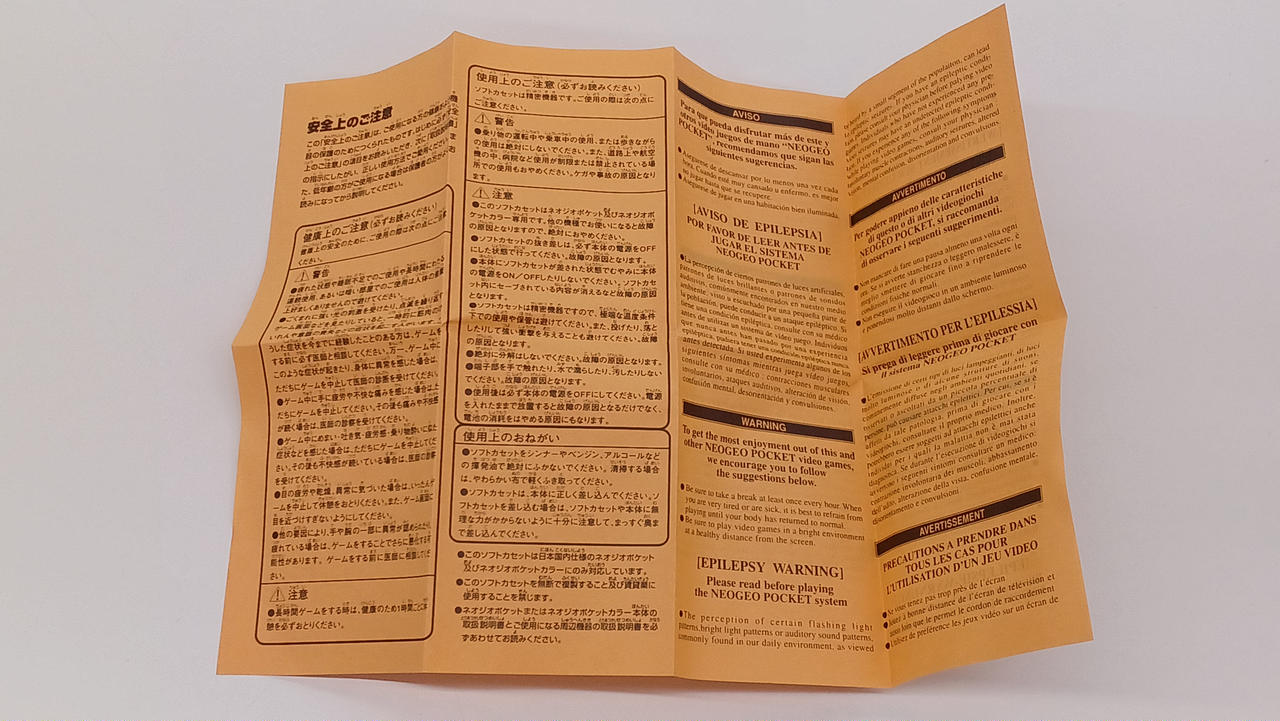 安全上のご注意
この「安全上のご注意」は、ご使用になる方の健康および
読みになってから説明してください。
健康上のご注意(必ずお読みください)
健康上の安全のために、ご使用の際は次の点にご注意
ください。
警告
する前に必ず医師と相談してください。万一、ゲーム中に
このような症状が起きたり、身体に異常を感じた場合は、
ただちにゲームを中止して医師の診察を受けてください。
●ゲーム中に手に疲労や不快な痛みを感じた場合は、た
だちにゲームを中止してください。その後も痛みや不快感
が続く場合は、医師の診察を受けてください。
●ゲーム中にめまい・吐き気・疲労感・乗り物酔いに似た
症状などを感じた場合は、ただちにゲームを中止してくだ
さい。その後も不快感が続いている場合は、医師の診察
を受けてください。
●目の疲労や乾燥、異常に気づいた場合は、いったんゲ
ームを中止して休憩をおとりください。また、ゲーム画面に
目を近づけすぎないようにしてください。
●他の要因により、手や腕の一部に異常が認められたり、
疲れている場合は、ゲームをすることでさらに悪化する可
能性があります。ゲームをする前に医師に相談してくださ
い。
注意
●長時間ゲームをする時は、健康のため1時間ごとに休
憩を必ずおとりください。
使用上のご注意(必ずお読みください)
ソフトカセットは精密機器です。ご使用の際は次の点に
ご注意ください。
警告
●乗り物の運転中や乗車中の使用、または歩きながら
の使用は絶対にしないでください。また、道路上や航空
機の中、病院など使用が制限または禁止されている場
所での使用もおやめください。ケガや事故の原因となり
ます。
注意
●このソフトカセットはネオジオポケット及びネオジオポ
ケットカラー専用です。他の機種でお使いになると故障
の原因となりますので、絶対におやめください。
●ソフトカセットの抜き差しは、必ず本体の電源をOFF
にした状態で行ってください。故障の原因となります。
●本体にソフトカセットが差された状態でむやみに本体
の電源をON/OFFしたりしないでください。ソフトカセ
ット内にセーブされている内容が消えるなど故障の原因
となります。
●ソフトカセットは精密機器ですので、極端な温度条件
下での使用や保管は避けてください。また、投げたり、落と
したりして強い衝撃を与えることも避けてください。故障
の原因となります。
●絶対に分解はしないでください。故障の原因となります。
●端子部を手で触れたり、水で濡らしたり、汚したりしない
でください。故障の原因となります。
●使用後は必ず本体の電源をOFFにしてください。電源
を入れたままで放置すると故障の原因となるだけでなく、
電池の消耗をはやめる原因にもなります。
使用上のおねがい
●ソフトカセットをシンナーやベンジン、アルコールなど
の揮発油で絶対にふかないでください。清掃する場合
は、やわらかい布で軽くふき取ってください。
●ソフトカセットは、本体に正しく差し込んでください。ソ
フトカセットを差し込む場合は、ソフトカセットや本体に無
理な力がかからないように十分に注意して、まっすぐ奥ま
で差し込んでください。
●このソフトカセットは日本国内仕様のネオジオポケット
及びネオジオポケットカラーにのみ対応しています。
●このソフトカセットを無断で複製すること及び賃貸業に
使用することを禁じます。
●ネオジオポケットまたはネオジオポケットカラー本体の
取扱説明書とご使用になる周辺機器の取扱説明書を必
ずあわせてお読みください。
AVISO
Para que pueda disfrutar más de este y
otros video juegos de mano "NEOGEO
POCKET", recomendamos que sigan las
siguientes sugerencias.
●Asegurese de descansar por lo menos una vez cada
hora. Cuando esté muy cansado u enfermo, es mejor
no jugar hasta que se recupere.
●Asegúrese de jugar en una habitación bien iluminada.
[AVISO DE EPILEPSIA]
POR FAVOR DE LEER ANTES DE
JUGAR EL SISTEMA
NEOGEO POCKET
●La percepción de ciertos patrones de luces artificiales,
patrones de luces brillantes o patrones de sonidos
audibles, comúnmente encontrados en nuestro medio
ambiente, visto u escuchado por una pequeña parte de
la población, puede conducir a un ataque epiléptico. Si
tiene una condición epiléptica, consulte con su médico
antes de utilizar un sistema de video juego. Individuos
que nunca antes han pasado por una experiencia
epiléptica, pudiera tener una condición epiléptica nunca
antes detectada. Si usted experimenta algunos de los
siguientes síntomas mientras juega video juegos,
consulte con su médico: contracciones musculares
involuntarias, ataques auditivos, alteración de visión,
confusión mental, desorientación y convulsiones.
WARNING
To get the most enjoyment out of this and
other NEOGEO POCKET video games,
we encourage you to follow
the suggestions below.
●Be sure to take a break at least once every hour. When
you are very tired or are sick, it is best to refrain from
playing until your body has returned to normal.
●Be sure to play video games in a bright environment
at a healthy distance from the screen.
[EPILEPSY WARNING]
Please read before playing
the NEOGEO POCKET system
●The perception of certain flashing light
patterns, bright light patterns or auditory sound patterns,
commonly found in our daily environment, as viewed
by a small segment of the populaiton, can lead
to epileptic seizures. If you have an epileptic condi-
tion, please consult your physician before palying video
games. Individuals who have not experienced any pre-
vious seizures may have an undetected epileptic condi-
tion. If you experience any of the following symptoms
while playing video games, consult your physician:
involuntary muscle contractions, auditory seizures, altered
vision, mental confusion, disorientation and convulsions.
AVVERTIMENTO
Per godere appieno delle caratteristiche
di questo o di altri videogiochi
NEOGEO POCKET, si raccomanda
di osservare i seguenti suggerimenti.
●Non mancare di fare una pausa almeno una volta ogni
ora. Se si avverte stanchezza o leggero malessere, è
meglio smettere di giocare fino a riprendere le
condizioni fisiche normali.
●Non eseguire il videogioco in un ambiente luminoso
e ponendosi molto distanti dallo schermo.
[AVVERTIMENTO PER L'EPILESSIA]
Si prega di leggere prima di giocare con
il sistema NEOGEO POCKET
●L'emissione di certi tipi di luci lampeggianti, di luci
molto luminose o di alcune strutture di suoni,
comunemente diffuse negli ambienti quotidiani, se
osservati o ascoltati da un piccola percentuale di
persone, può causare attacchi epilettici. Per cui, se si è
affetti da tale patologia, prima di giocare con i
videogiochi, consultare il proprio medico. Inoltre,
potrebbero essere soggetti ad attacchi epilettici anche
individui per i quali la malattia non è mai stata
diagnosticata. Se durante l'esecuzione di videogiochi si
avvertono i seguenti sintomi consultare un medico:
contrazione involontaria dei muscoli, abbassamento
dell'udito, alterazione della vista, confusione mentale,
disorientamento e convulsioni.
AVERTISSEMENT
PRÉCAUTIONS A PRENDRE DANS
TOUS LES CAS POUR
L'UTILISATION D'UN JEU VIDEO
●Ne vous tenez pas trop près de l'écran
●Jouez à bonne distance de l'écran de télévision et
aussi loin que le permet le cordon de raccordement
●Utilisez de préférence les jeux vidéo sur un écran de